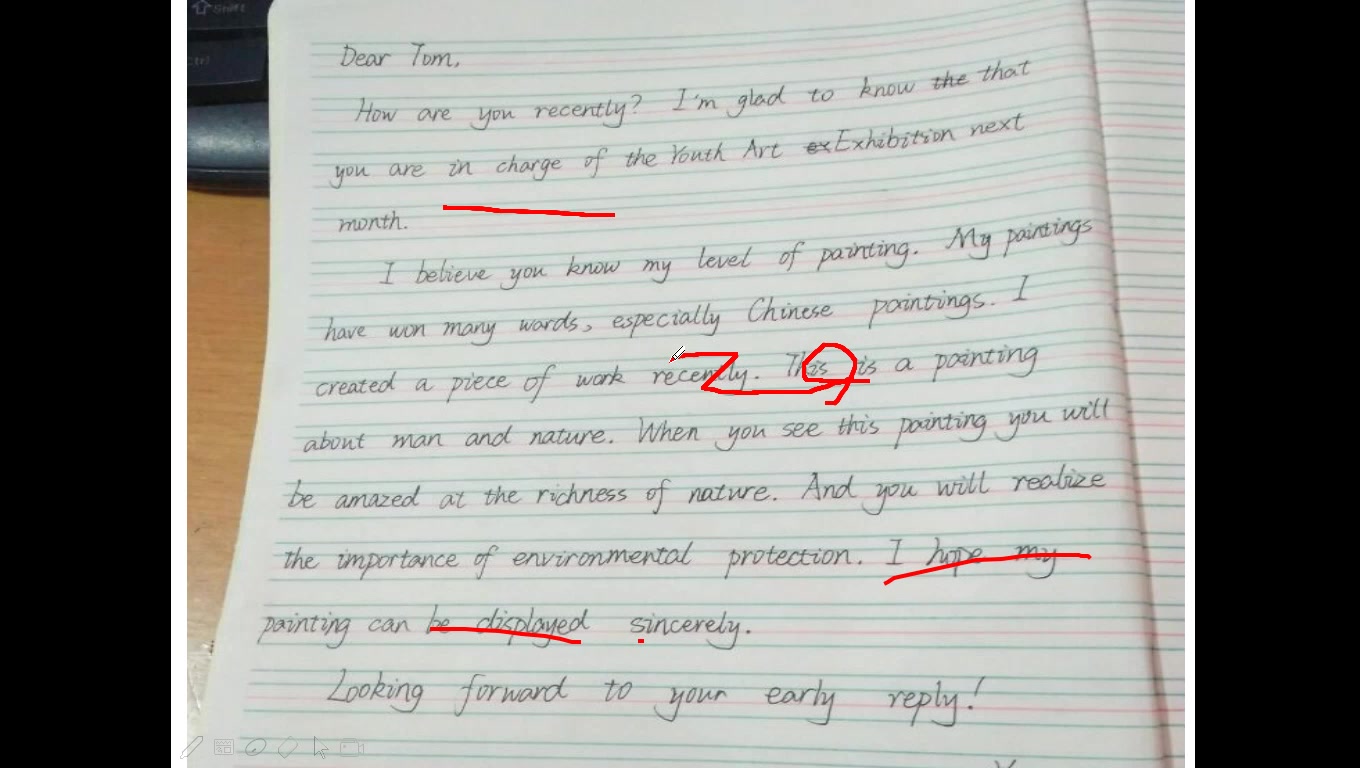 Shift
Ctrl
Dear Tom,
How are you recently? I'm glad to know the that
you are in charge of the Youth Art ex Exhibition next
month.
I believe you know my level of painting. My paintings
have won many words, especially Chinese paintings. I
created a piece of work recently. This is a painting
about man and nature. When you see this painting you will
be amazed at the richness of nature. And you will realize
the importance of environmental protection. I hope my
painting can be displayed sincerely.
Looking forward to your early reply!